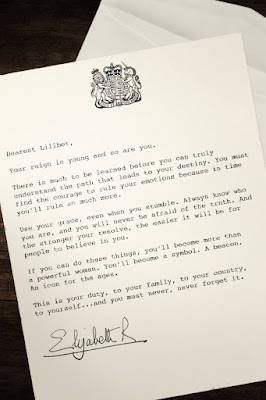 Dearest Lilibet,
Your reign is young and so are you.
There is much to be learned before you can truly
understand the path that leads to your destiny. You must
find the courage to rule your emotions because in time
you'll rule so much more.
Use your grace, even when you stumble. Always know who
you are, and you will never be afraid of the truth. And
the stronger your resolve, the easier it will be for
people to believe in you.
If you can do these things, you'll become more than
a powerful woman. You'll become a symbol. A beacon.
An icon for the ages.
This is your duty, to your family, to your country,
to yourself...and you must never, never forget it.
Elizabeth R